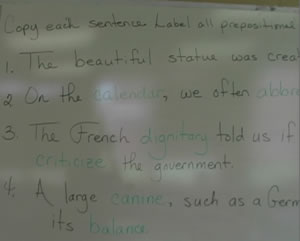 Copy each sentence. Label all prepositional
1. The beautiful statue was
2 On the calendar, we often
3. The French dignitary told us if
criticize the government.
4. A large canine, such as a
its balance